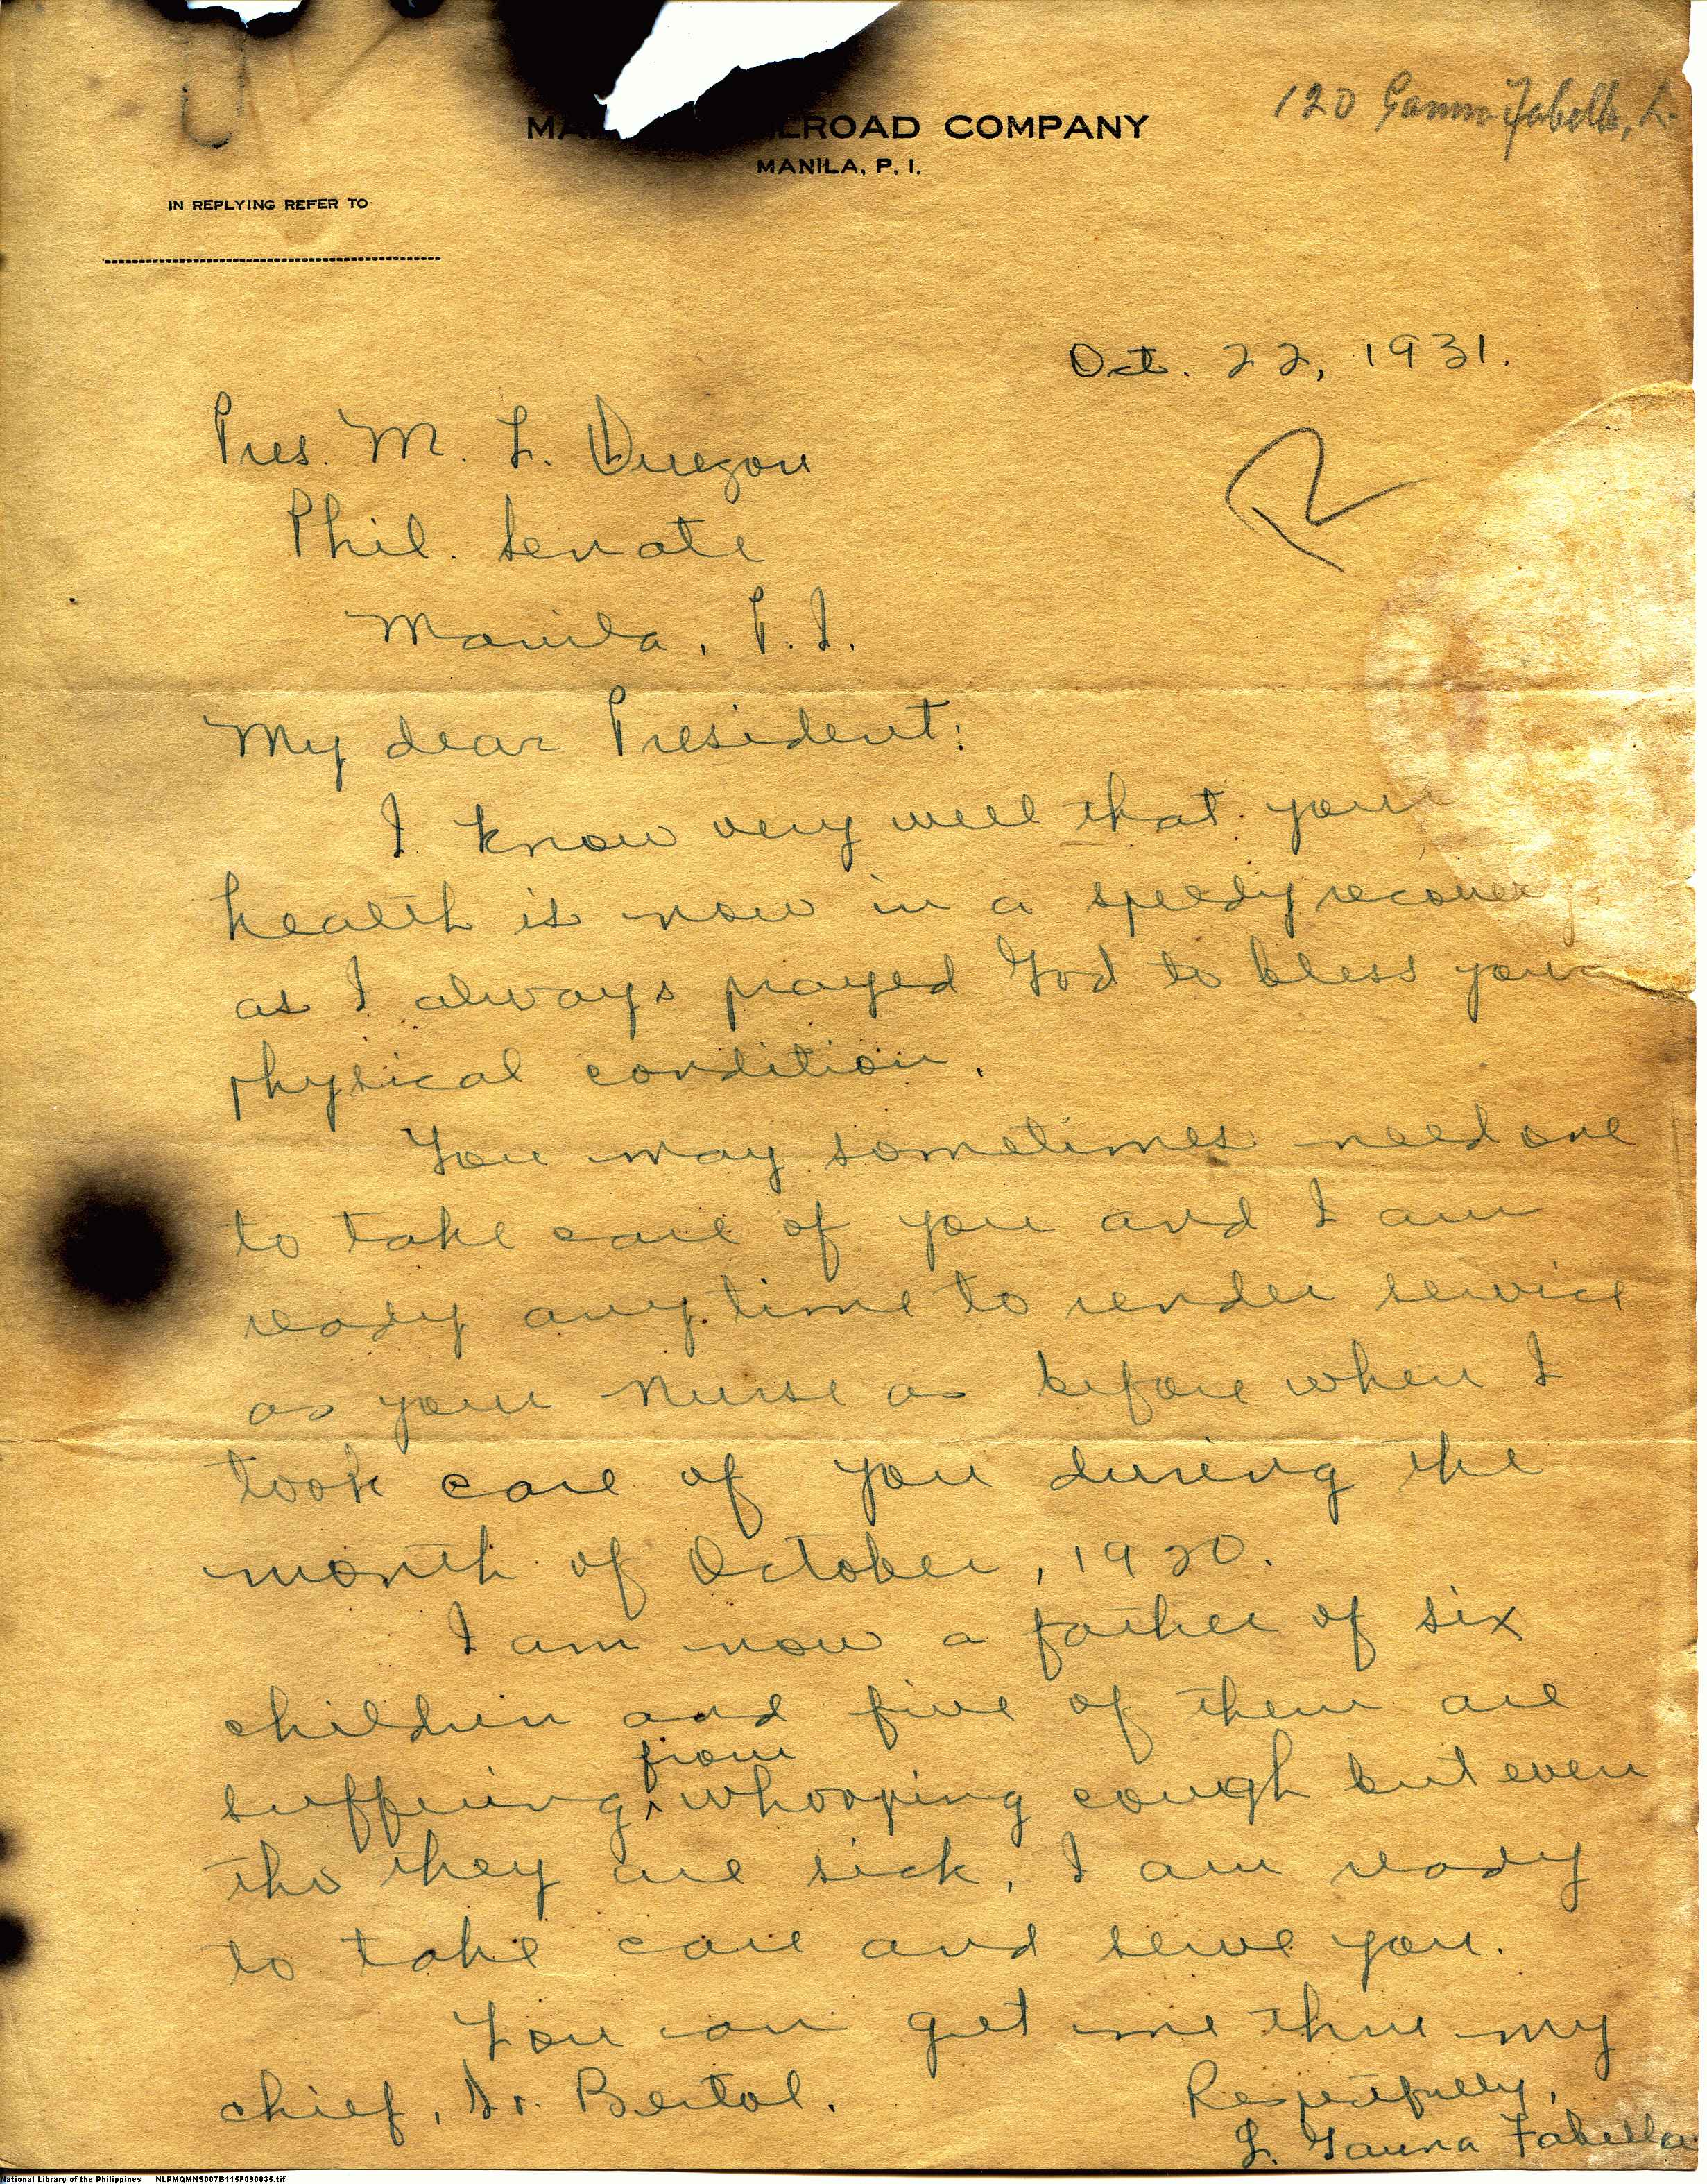 120 Fabella, L.
MA ROAD COMPANY
MANILA, P. I.
IN REPLYING REFER TO
Oct. 22, 1931.
Pres. M. L. Quezon
Phil. Senate
Manila, P. I.
R
My dear President:
I know very well that your
health is now in a speedy recovery
as I always prayed God to bless your
physical condition.
You may sometimes need one
to take care of you and I am
ready any time to render service
as your nurse as before when I
took care of you during the
month of October, 1920.
I am now a father of six
children and five of them are
from
suffering ^ whooping cough but even
tho they are sick, I am ready
to take care and serve you.
You can get me thru my
chief, Dr. Bertol.
Respectfully,
L. Fabella
National Library of the Philippines NLPMQMNS007B115F090035.tif